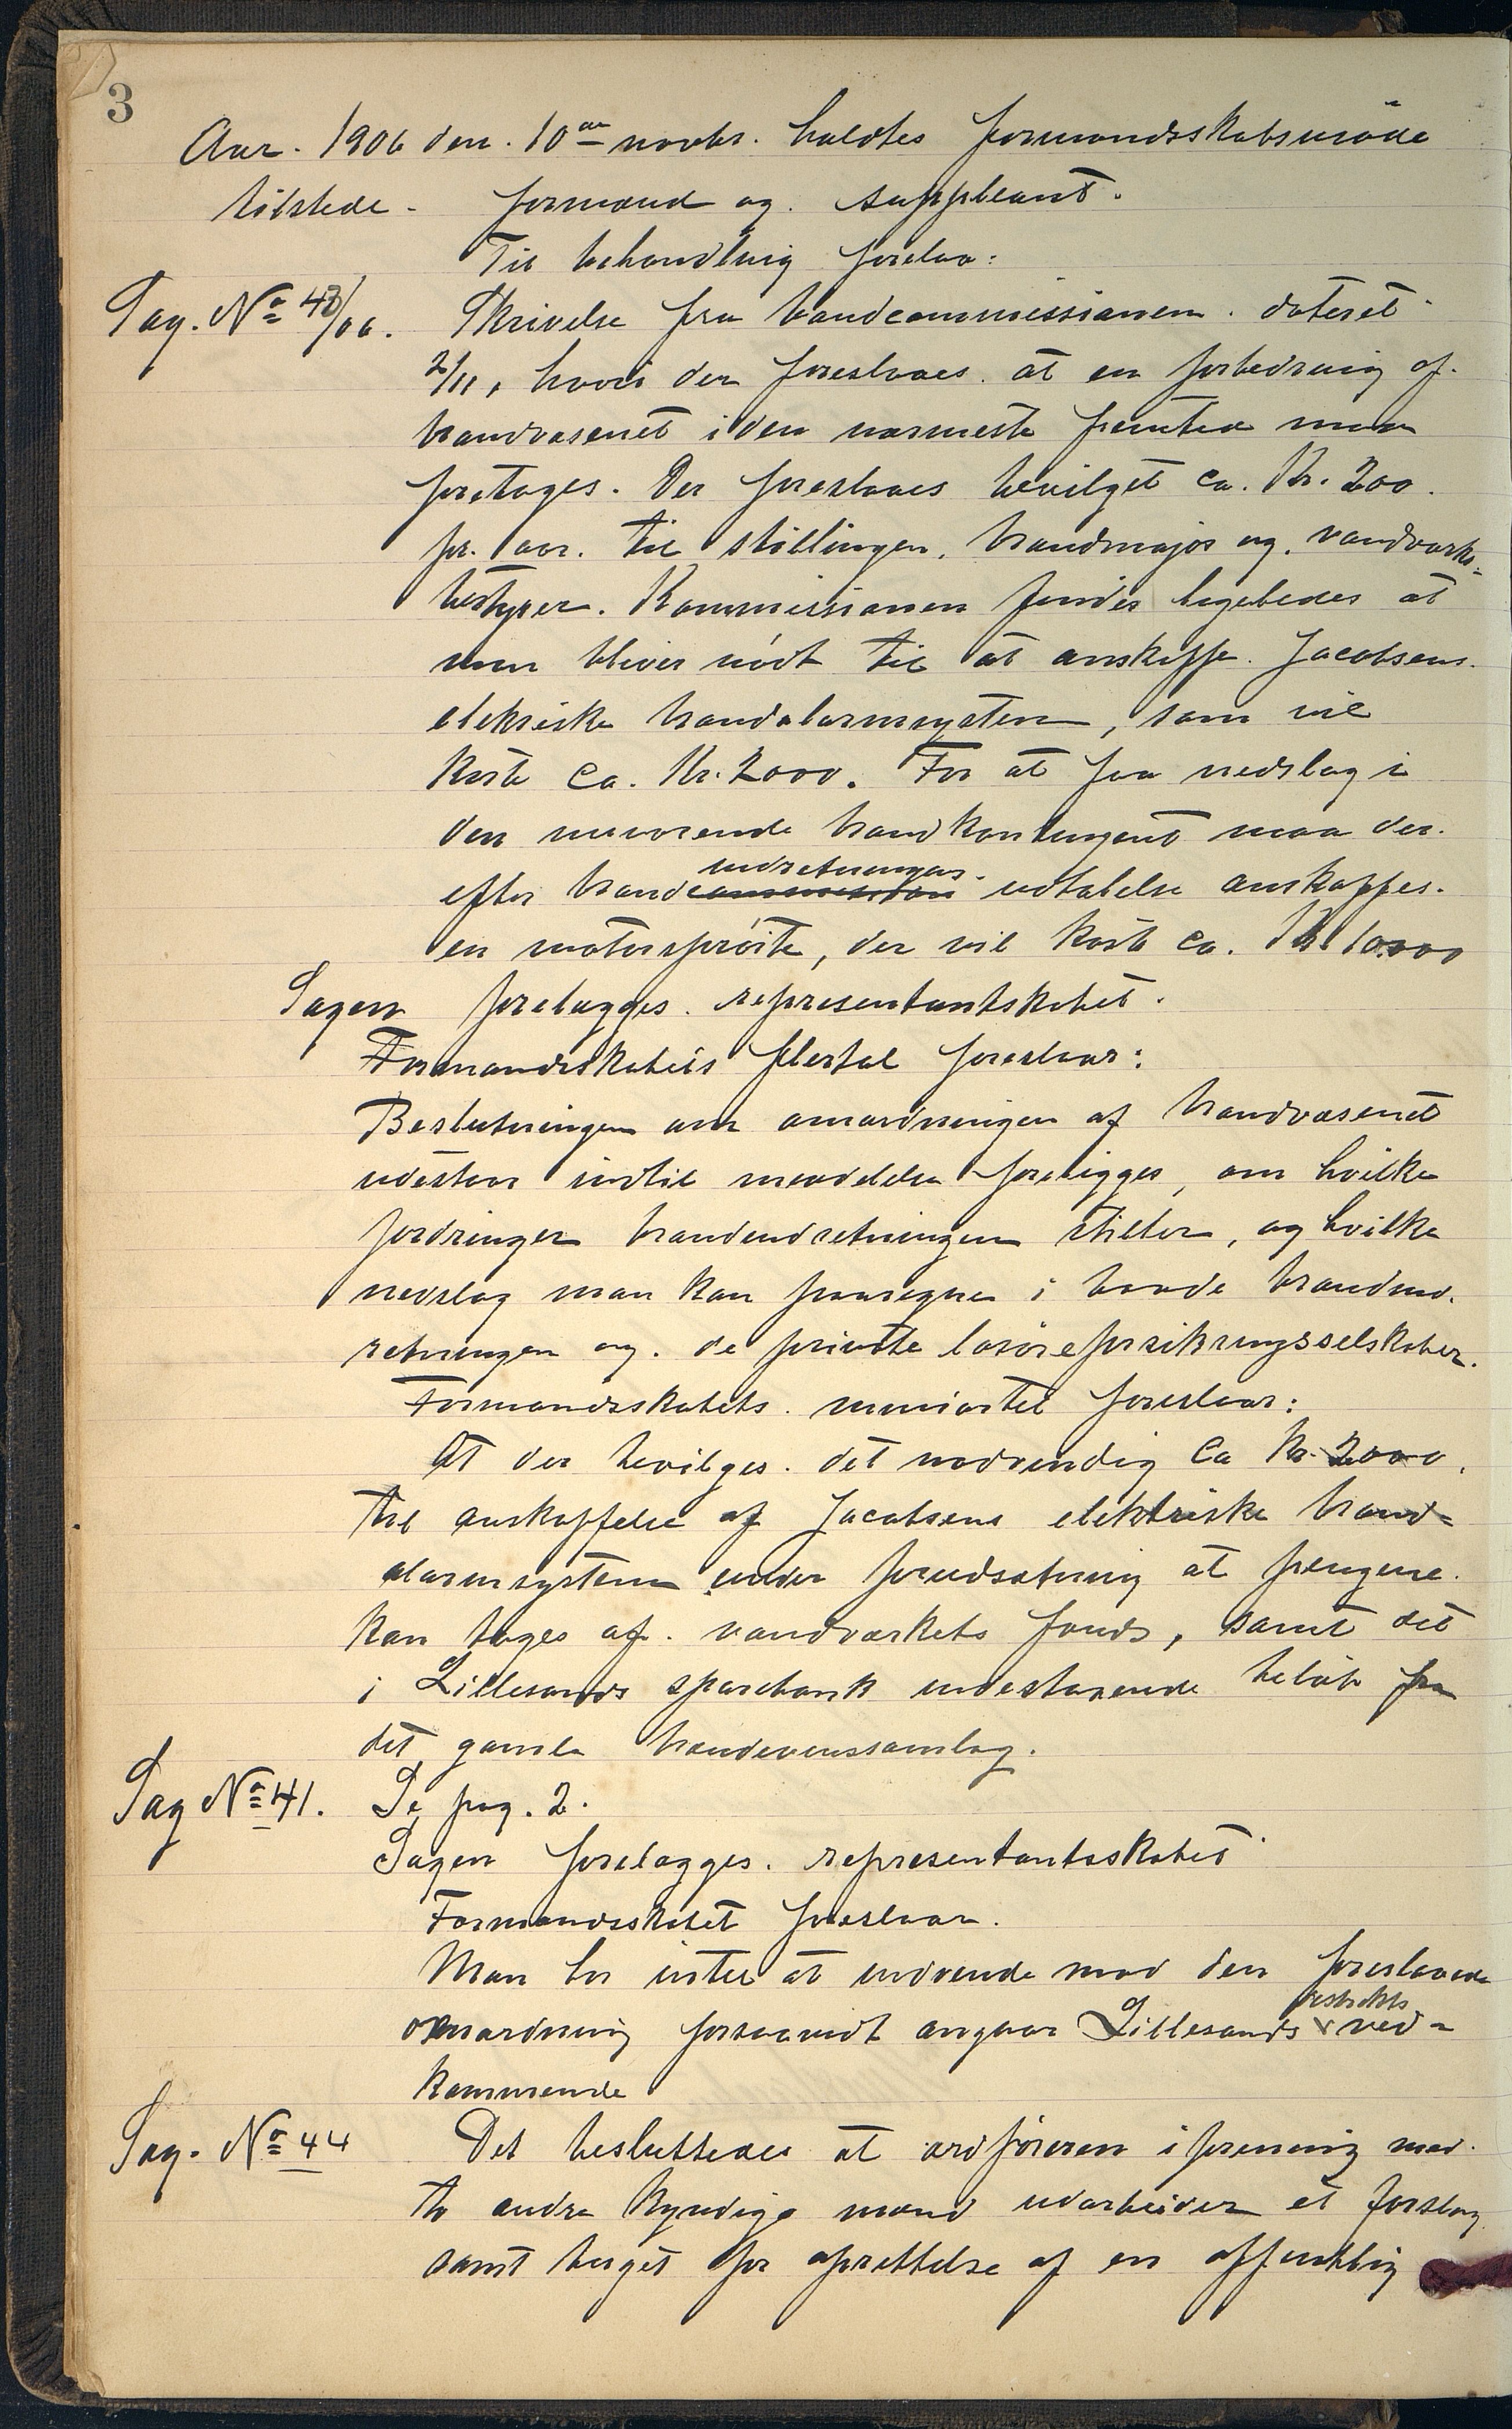 3
Aar. 1906 den. 10de novbr. holdtes formandsskabsmöde
tilstede - formænd og. suppleant.
Til behandling forelaa:
Sag. No 43/06. Skrivelse fra brandcommissionen. dateret
2/11, hvori der foreslaaes. at en forbedring af.
brandvæsenet i den nærmeste fremtid maa
foretages. Der foreslaaes bevilget ca. Kr. 200.
pr. aar. til stillingen. brandmajor og. vandværks-
bestyrer. Kommissionen finder ligeledes at
man bliver nödt til at anskaffe. Jacobsens.
elektriske brandalarmsystem, som vil
koste ca. Kr. 2000. For at faa nedslag i
den nuværende brandkontingent maa der.
indretningens.
efter brandcommission udtalelse anskaffes.
en motorspröite, der vil koste ca. Kr. 10.000
Sagen forelægges. representantskabet.
Formandsskabets flertal foreslaar:
Beslutningen om omordningen af brandvæsenet
udestaar indtil meddelelse foreligges, om hvilke
fordringer brandindretningen stiller, og hvilke
nedslag man kan paaregne i baade brandind.
retningen og. de private lösöreforsikringsselskaber.
Formandsskabets. minoritet foreslaar:
At der bevilges. det nødvendig Ca Kr. 2000.
til anskaffelse af Jacobsens elektriske brand-
alarmsystem under forudsætning at pengene.
kan tages af. vandværkets fonds, samt det
i Lillesands sparebank indestaaende belöb fra
det gamle brændevinssamlag.
Sag No 41. Se pag. 2.
Sagen forelægges. representantsskabet
Formandsskabet foreslaar.
Man har intet at indvende mod den foreslaaede
distrikts
omordning forsaavidt angaar Lillesands ved-
kommende
Sag. No 44 Det besluttedes at ordföreren i forening med.
to andre kyndige mænd udarbeider et forslag
samt for oprettelse af en offentlig